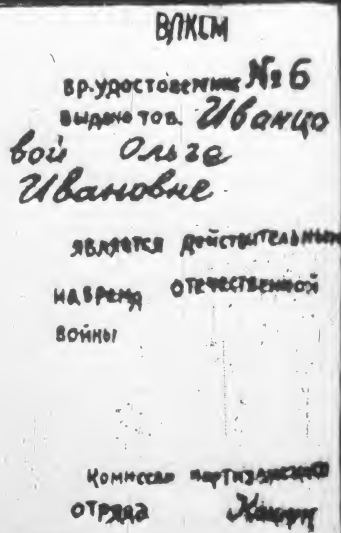 ВЛКСМ
вр. удостоверение № 6
выдано тов. Иванцо
вой Ольге
Ивановне.
является действительным
на время отечественной
войны
Комиссар партизанского
отряда